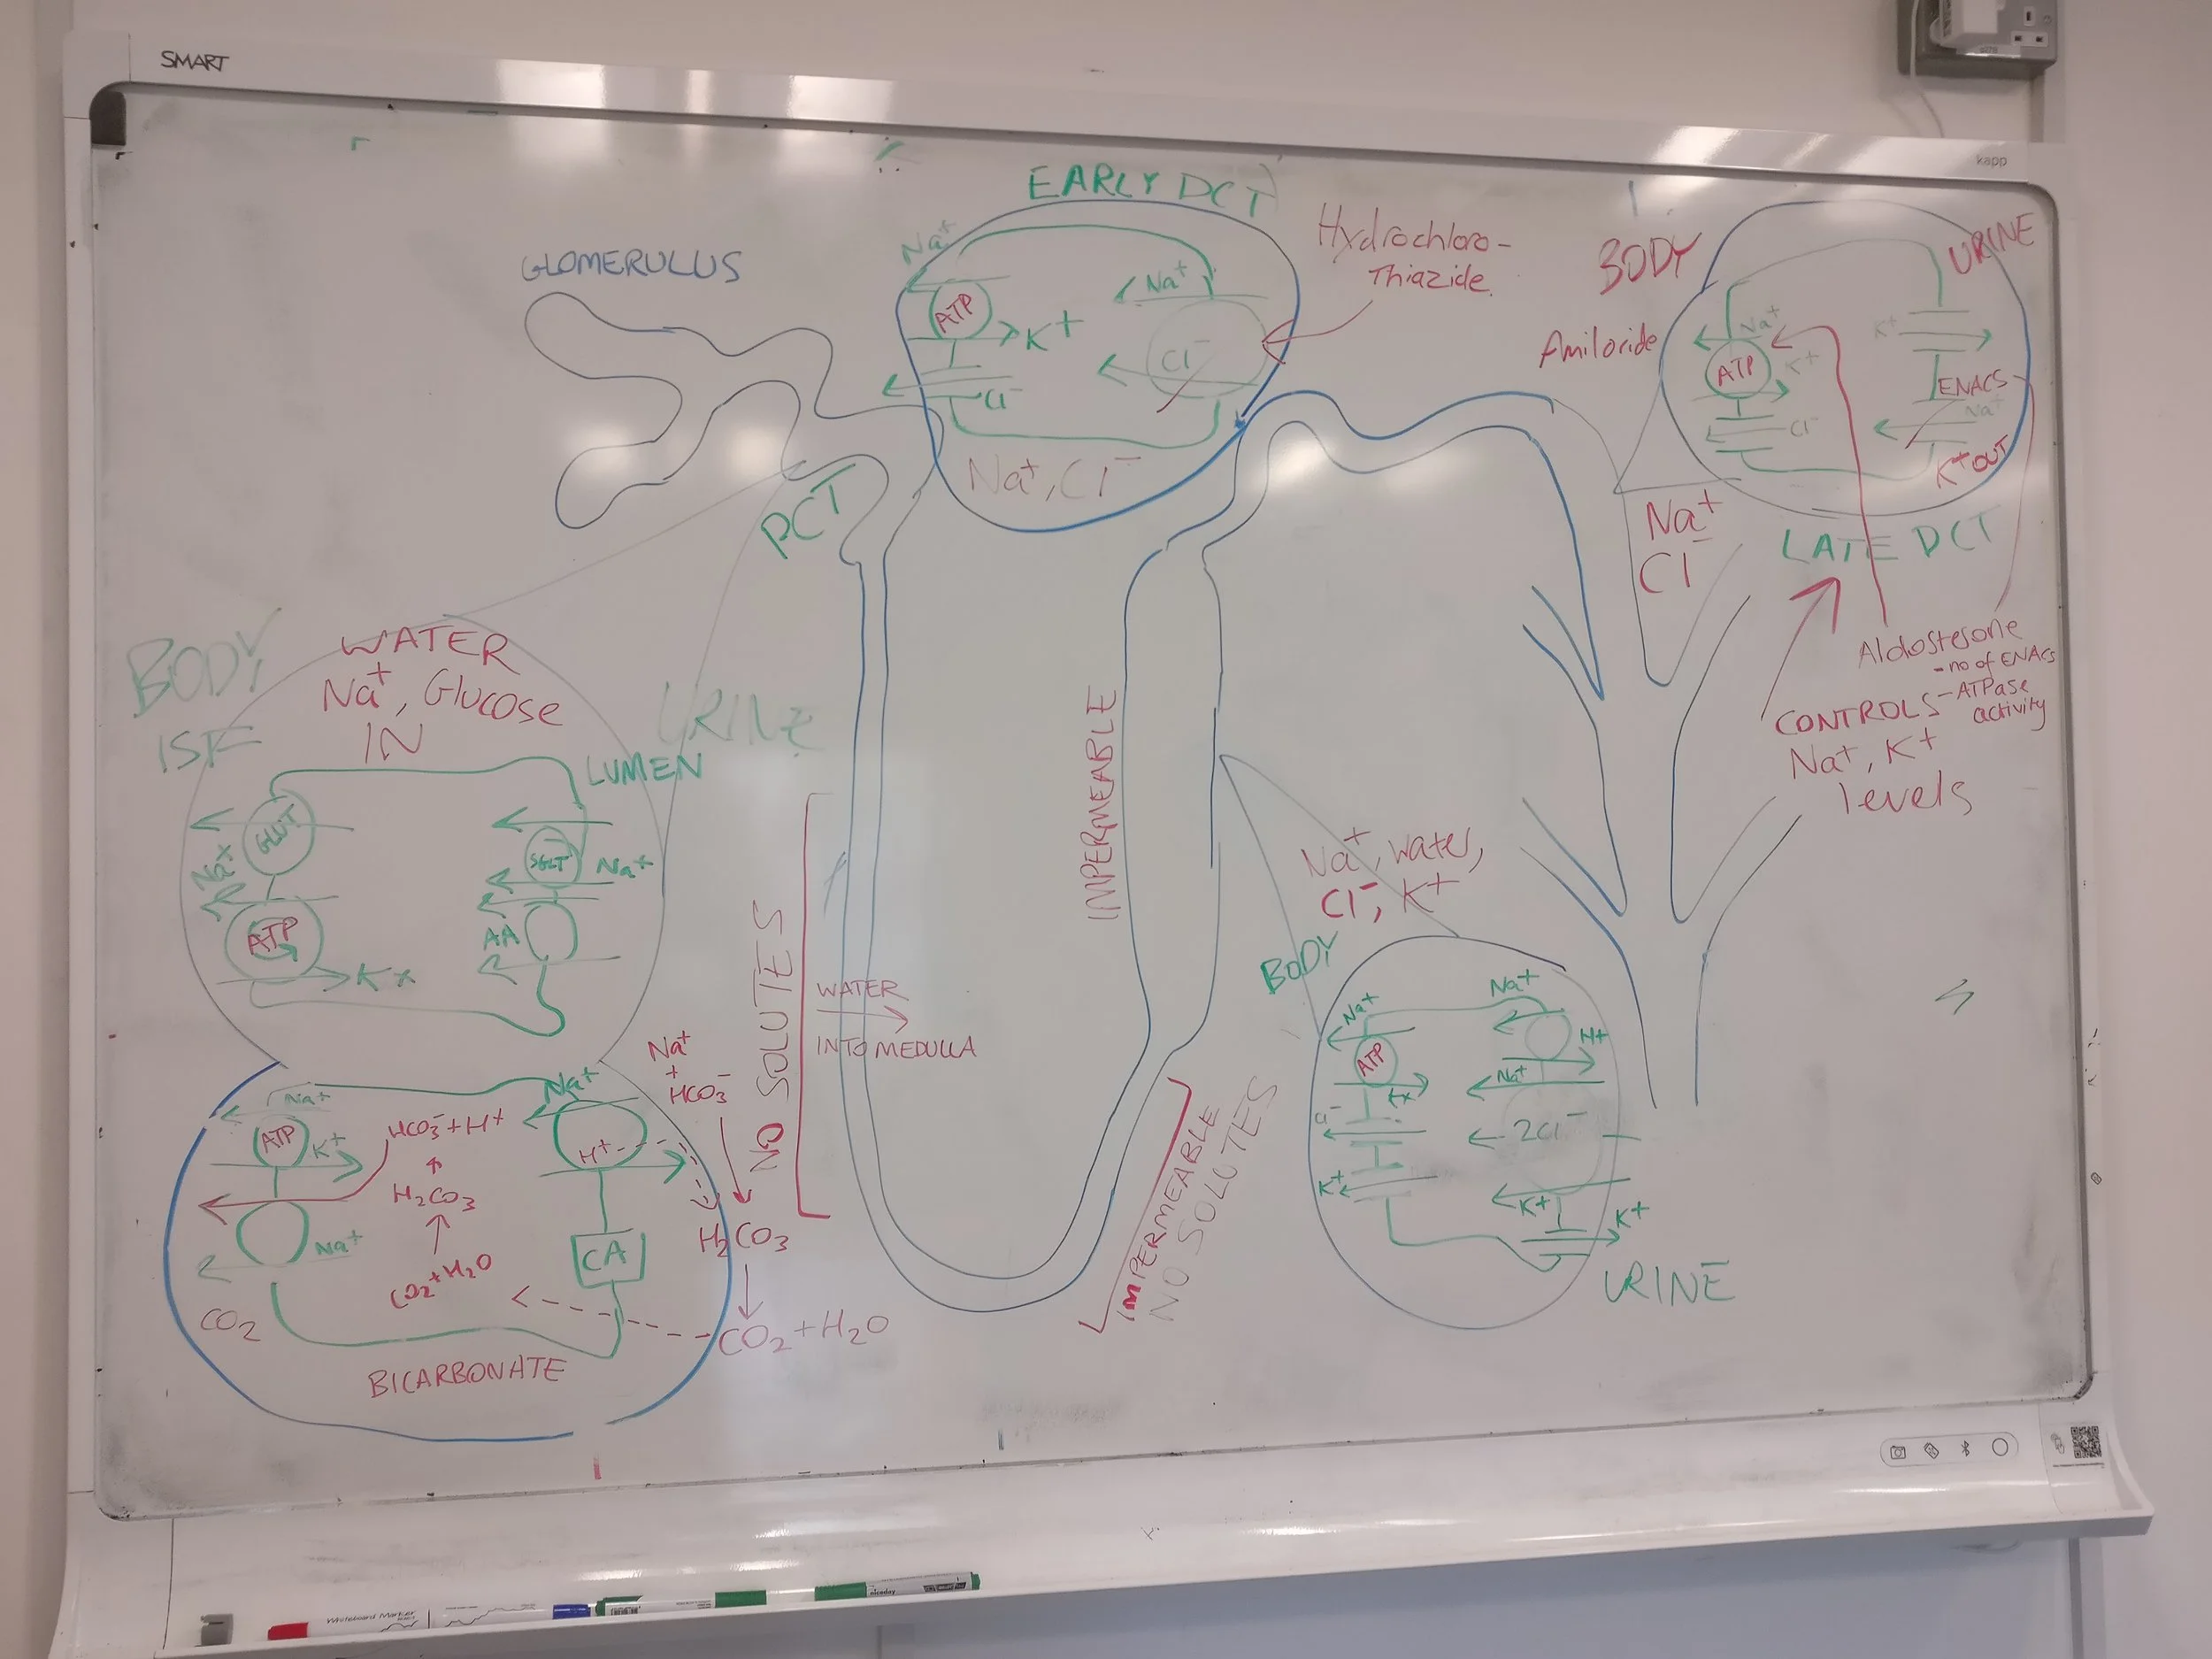 SMART
kapp
EARLY DCT
GLOMERULUS
Na+
ATP
K+
Cl-
Na+
Cl-
Na+, Cl-
Hydrochloro-
Thiazide.
BODY
URINE
Amiloride
Na+
ATP
K+
Cl-
K+
ENACS
Na+
K+ OUT
LATE DCT
Na+
Cl-
Aldosterone
- no of ENACs
- ATPase
activity
CONTROLS
Na+, K+
levels
PCT
BODY
ISF
WATER
Na+, Glucose
IN
URINE
LUMEN
GLUT
Na+
ATP
K+
SGLT
Na+
AA
NO SOLUTES
WATER
INTO MEDULLA
IMPERMEABLE
IMPERMEABLE
NO SOLUTES
Na+, water,
Cl-, K+
BODY
Na+
ATP
K+
Cl-
K+
Na+
H+
Na+
2Cl-
K+
K+
URINE
Na+
ATP
K+
Na+
HCO3- + H+
H2CO3
CO2 + H2O
CO2
BICARBONATE
Na+
H+
CA
Na+
+
HCO3-
H2CO3
CO2 + H2O
Whiteboard Marker